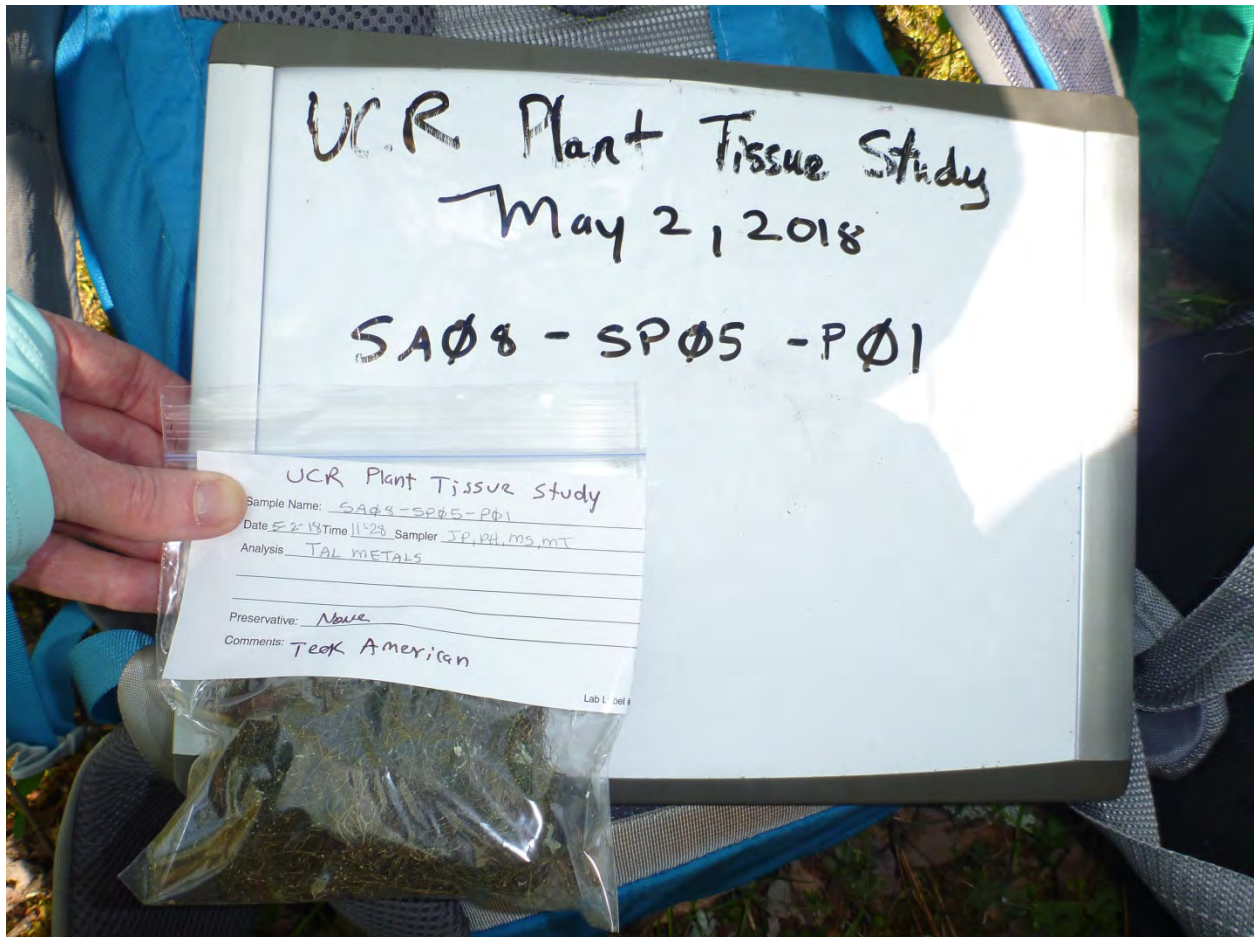 UCR Plant Tissue Study
May 2, 2018
SAØ8 - SPØ5 - PØ1
UCR Plant Tissue Study
Sample Name: SAØ8-SPØ5-PØ1
Date 5-2-18 Time 11:28 Sampler JP, PH, MS, MT
Analysis TAL METALS
Preservative: None
Comments: Teck American
Lab Label #